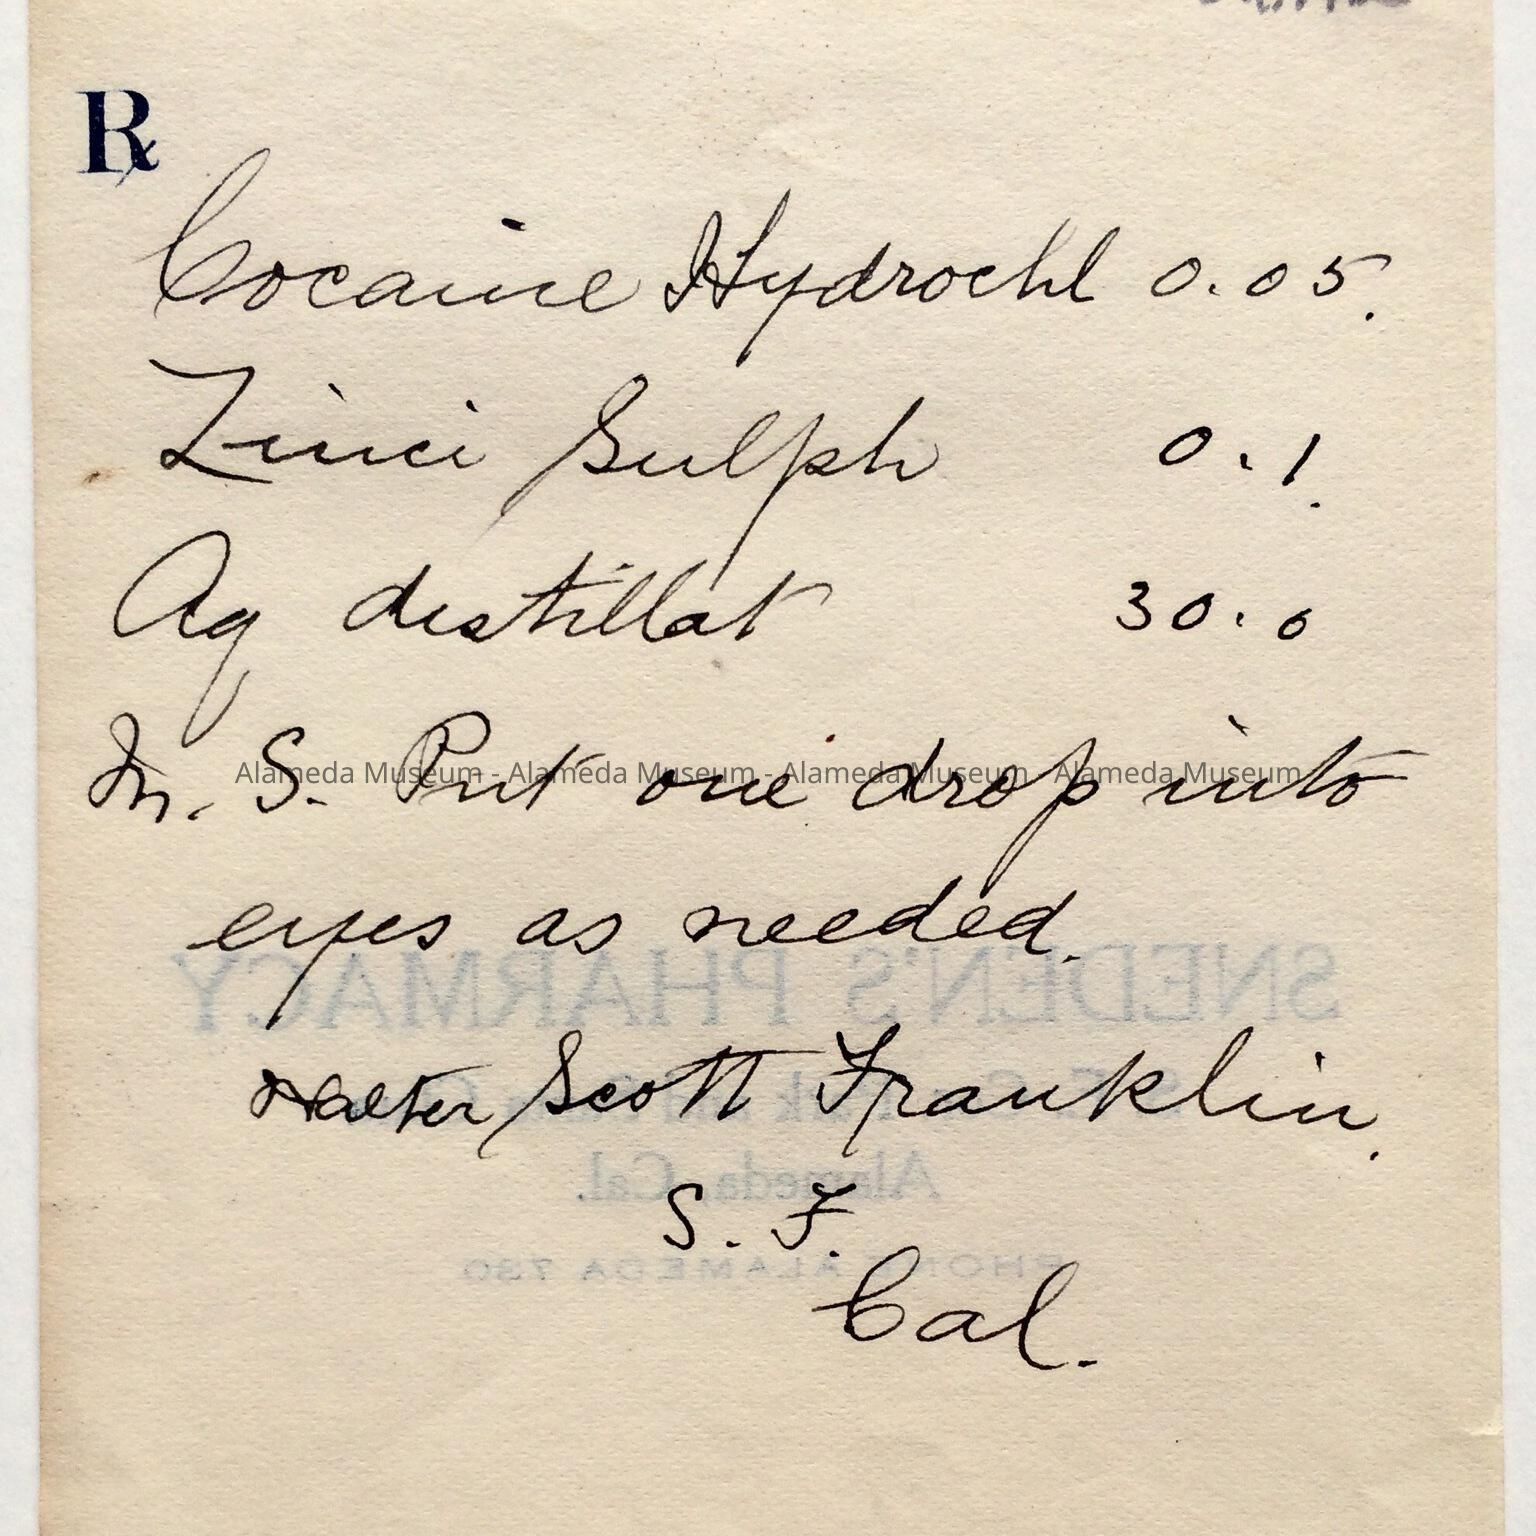 ℞
Cocaine Hydrochl 0.05.
Zinci Sulph 0.1.
Aq distillat 30.0
M. S. Put one drop into
Alameda Museum - Alameda Museum - Alameda Museum - Alameda Museum
eyes as needed.
SNEDEN'S PHARMACY
Walter Scott Franklin.
Alameda, Cal.
S. F.
PHONE ALAMEDA 730
Cal.